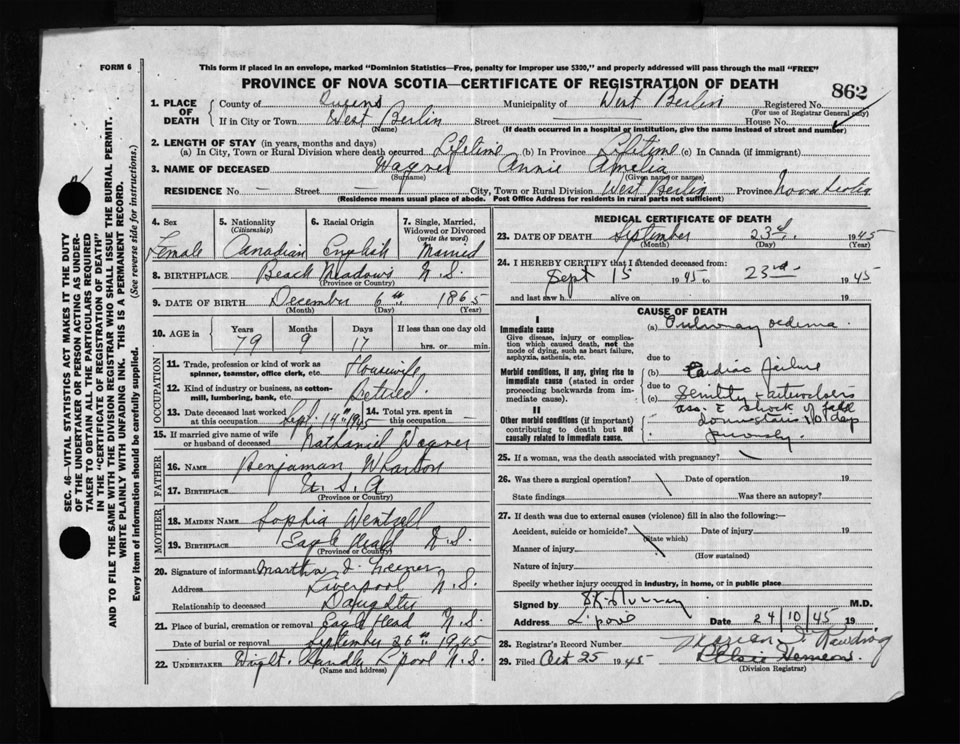 FORM 6
This form if placed in an envelope, marked "Dominion Statistics—Free, penalty for improper use $300," and properly addressed will pass through the mail "FREE"
PROVINCE OF NOVA SCOTIA—CERTIFICATE OF REGISTRATION OF DEATH
862
1. PLACE OF DEATH { County of Queens Municipality of West Berlin Registered No.
(For use of Registrar General only)
If in City or Town West Berlin Street House No.
(Name) (If death occurred in a hospital or institution, give the name instead of street and number)
2. LENGTH OF STAY (in years, months and days)
(a) In City, Town or Rural Division where death occurred Lifetime (b) In Province Lifetime (c) In Canada (if immigrant)
3. NAME OF DECEASED Wagner Annie Amelia
(Surname) (Given name or names)
RESIDENCE No — Street City, Town or Rural Division West Berlin Province Nova Scotia
(Residence means usual place of abode. Post Office Address for residents in rural parts not sufficient)
4. Sex Female
5. Nationality (Citizenship) Canadian
6. Racial Origin English
7. Single, Married, Widowed or Divorced (write the word) Married
8. BIRTHPLACE Beach Meadows N.S.
(Province or Country)
9. DATE OF BIRTH December 6th 1865
(Month) (Day) (Year)
10. AGE in Years 79 Months 9 Days 17 If less than one day old hrs. or min.
OCCUPATION
11. Trade, profession or kind of work as spinner, teamster, office clerk, etc. Housewife
12. Kind of industry or business, as cotton-mill, lumbering, bank, etc. Retired
13. Date deceased last worked at this occupation Sept. 14th 1945 14. Total yrs. spent in this occupation —
15. If married give name of wife or husband of deceased Nathaniel Wagner
FATHER
16. NAME Benjaman Wharton
17. BIRTHPLACE U.S.A
(Province or Country)
MOTHER
18. MAIDEN NAME Sophia Wentzell
19. BIRTHPLACE Eagle Head N.S.
(Province or Country)
20. Signature of informant Martha
Address Liverpool N.S.
Relationship to deceased Daughter
21. Place of burial, cremation or removal Eagle Head N.S.
Date of burial or removal September 26th 1945
22. UNDERTAKER L'pool N.S.
(Name and address)
MEDICAL CERTIFICATE OF DEATH
23. DATE OF DEATH September 23rd 1945
(Month) (Day) (Year)
24. I HEREBY CERTIFY that I attended deceased from:
Sept 15 1945 to 23rd 1945
and last saw h alive on 19
CAUSE OF DEATH
I
Immediate cause
Give disease, injury or complication which caused death, not the mode of dying, such as heart failure, asphyxia, asthenia, etc.
(a) Pulmonary oedema
due to
Morbid conditions, if any, giving rise to immediate cause (stated in order proceeding backwards from immediate).
(b) Cardiac failure
due to
(c) Senility
II
Other morbid conditions (if important) contributing to death but not causally related to immediate cause.
shock of fall
downstairs
25. If a woman, was the death associated with pregnancy?
26. Was there a surgical operation? Date of operation 19
State findings Was there an autopsy?
27. If death was due to external causes (violence) fill in also the following:
Accident, suicide or homicide? Date of injury 19
(State which)
Manner of injury
(How sustained)
Nature of injury
Specify whether injury occurred in industry, in home, or in public place
Signed by Murray M.D.
Address L'pool Date 24/10/45 19
28. Registrar's Record Number
29. Filed Oct 25 1945
(Division Registrar)
SEC. 46—VITAL STATISTICS ACT MAKES IT THE DUTY
OF THE UNDERTAKER OR PERSON ACTING AS UNDER-
TAKER TO OBTAIN ALL THE PARTICULARS REQUIRED
IN THE "CERTIFICATE OF REGISTRATION OF DEATH"
AND TO FILE THE SAME WITH THE DIVISION REGISTRAR WHO SHALL ISSUE THE BURIAL PERMIT.
WRITE PLAINLY WITH UNFADING INK. THIS IS A PERMANENT RECORD.
Every item of information should be carefully supplied. (See reverse side for instructions.)